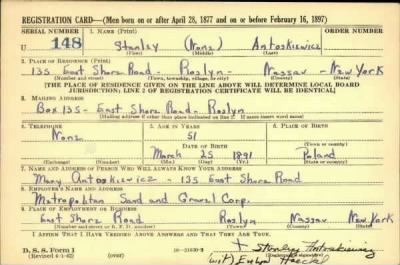 REGISTRATION CARD—(Men born on or after April 28, 1877 and on or before February 16, 1897)
SERIAL NUMBER 1. NAME (Print) ORDER NUMBER
U 148 Stanley (None) Antoskiewicz
(First) (Middle) (Last)
2. PLACE OF RESIDENCE (Print)
135 East Shore Road - Roslyn - Nassau - New York
(Number and street) (Town, township, village, or city) (County) (State)
[THE PLACE OF RESIDENCE GIVEN ON THE LINE ABOVE WILL DETERMINE LOCAL BOARD
JURISDICTION; LINE 2 OF REGISTRATION CERTIFICATE WILL BE IDENTICAL]
3. MAILING ADDRESS
Box 135 - East Shore Road - Roslyn
[Mailing address if other than place indicated on line 2. If same insert word same]
4. TELEPHONE 5. AGE IN YEARS 6. PLACE OF BIRTH
None 51
DATE OF BIRTH (Town or county)
March 25 1891 Poland
(Exchange) (Number) (Mo.) (Day) (Yr.) (State or country)
7. NAME AND ADDRESS OF PERSON WHO WILL ALWAYS KNOW YOUR ADDRESS
Mary Antoskiewicz - 135 East Shore Road
8. EMPLOYER'S NAME AND ADDRESS
Metropolitan Sand and Gravel Corp.
9. PLACE OF EMPLOYMENT OR BUSINESS
East Shore Road Roslyn Nassau New York
(Number and street or R. F. D. number) (Town) (County) (State)
I AFFIRM THAT I HAVE VERIFIED ABOVE ANSWERS AND THAT THEY ARE TRUE.
+ Stanley Antoskiewicz
D. S. S. Form 1 (Registrant's signature)
(Revised 4-1-42) (over) (wit) Evelyn